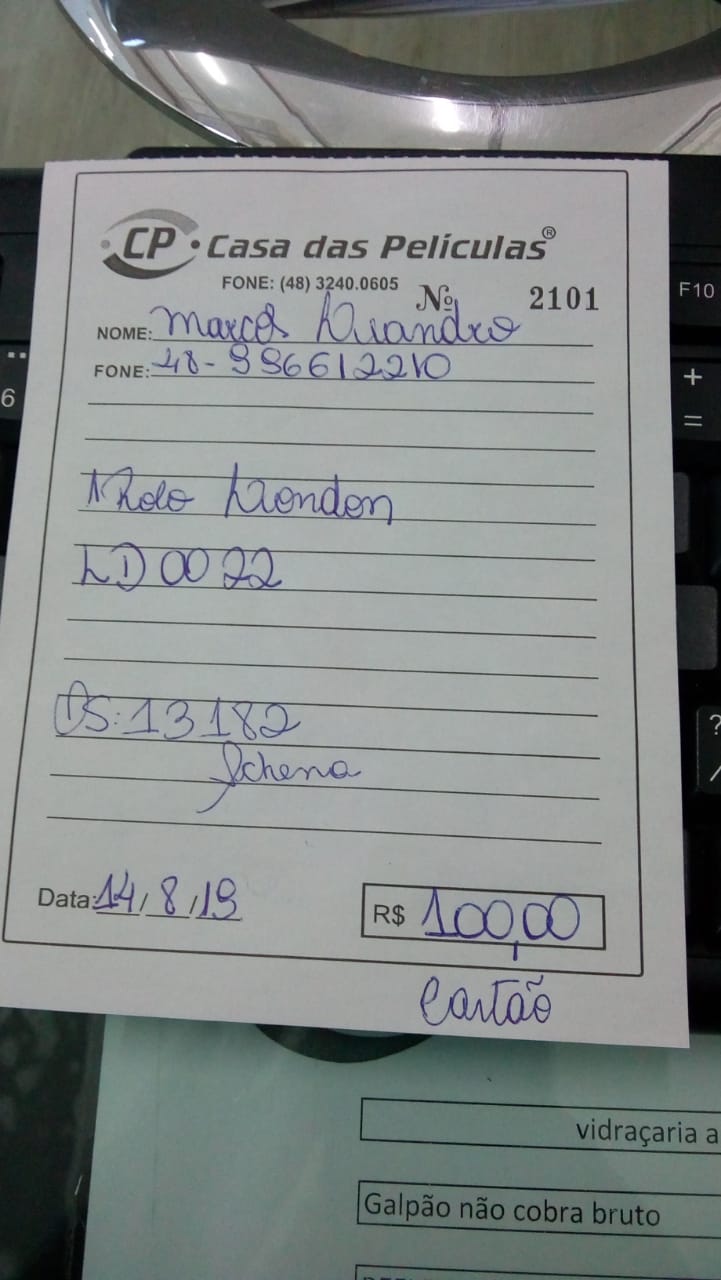 CP Casa das Películas®
FONE: (48) 3240.0605
Nº 2101
NOME: Marcos Lisandro
FONE: 48-996612210
1 Rolo London
LD0022
OS: 13182
Schena
Data: 14/8/19
R$ 100,00
Cartão
vidraçaria a
Galpão não cobra bruto
F10
+
=
6
?
/